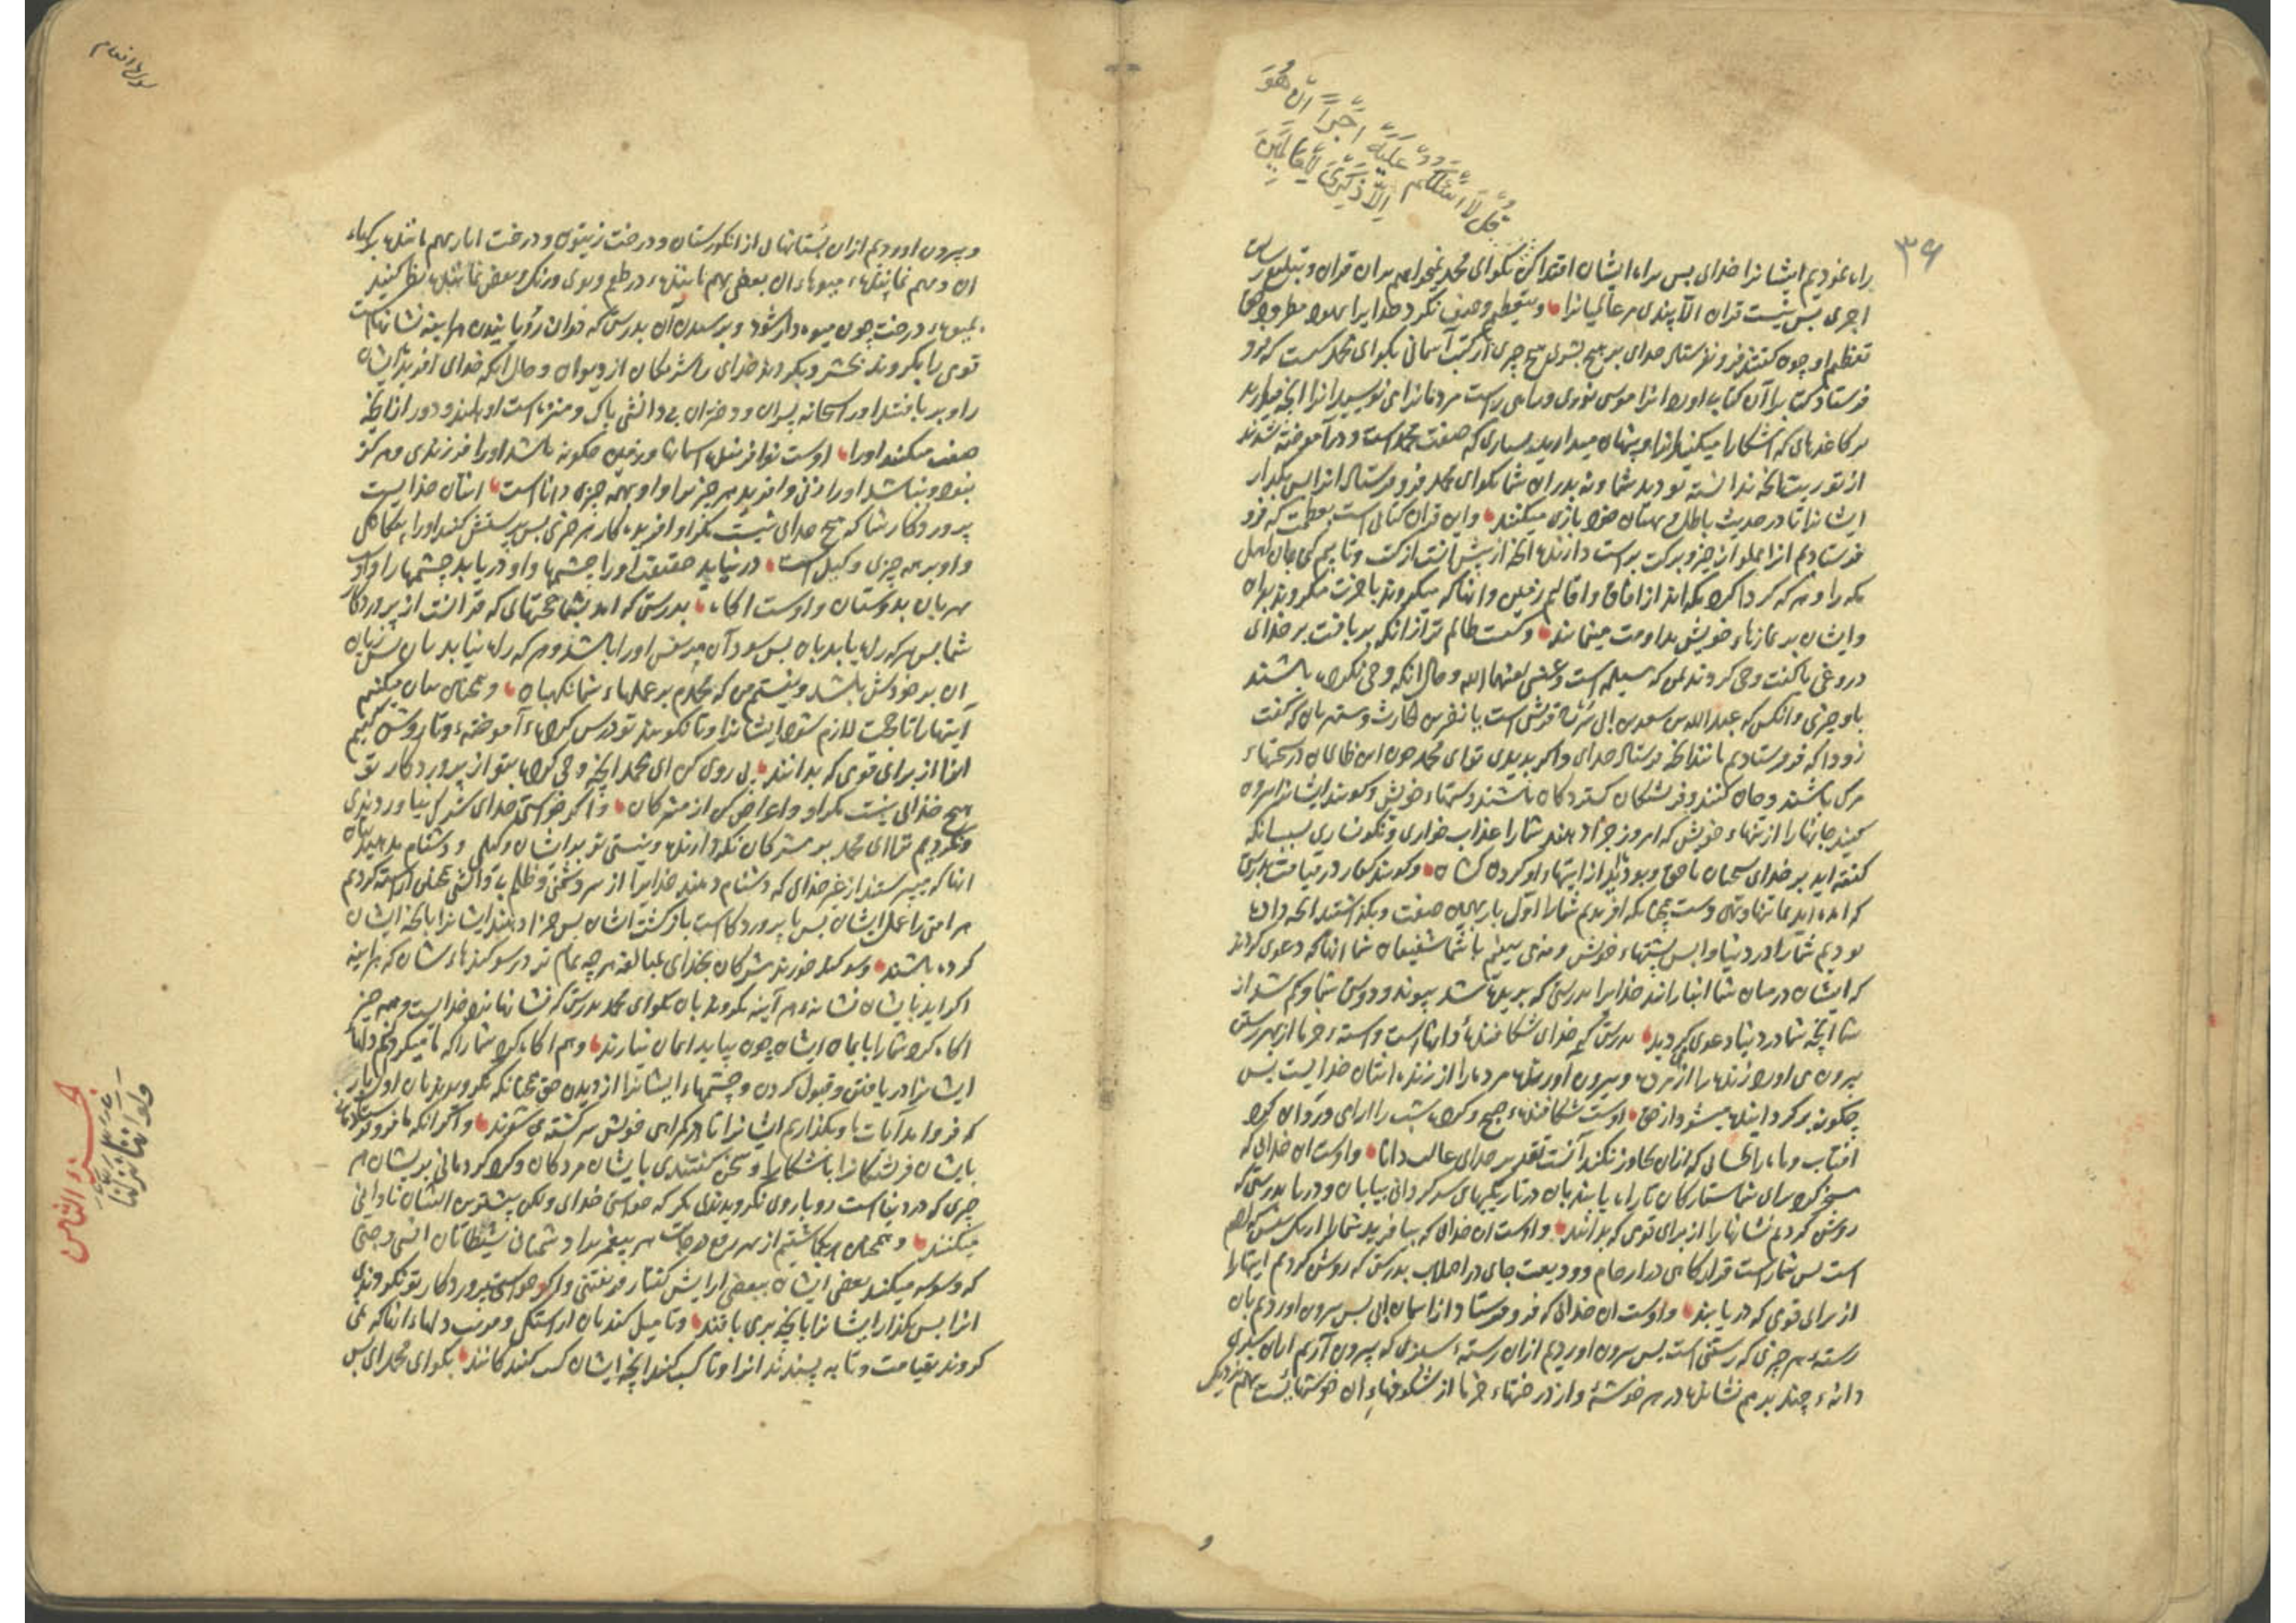 قُل لَّا أَسْئَلُكُمْ عَلَيْهِ أَجْرًا إِنْ هُوَ
إِلَّا ذِكْرَىٰ لِلْعَالَمِينَ
۳۹
راه نمودیم ایشانرا خدای پس براه ایشان اقتدا کن بگو ای محمد نمیخواهم بران قران و تبلیغ رسالت
اجری پس نیست قران الا پندی مر عالمیانرا و تعظیم و وصف نکردند خدایرا
تعظیم او چون گفتند فرو نفرستاد خدای بر هیچ بشری هیچ چیزی از کتب آسمانی بگو ای محمد کیست که فرو
فرستاد کتابرا آن کتاب آورد انرا موسی نوری و راهی راست مردمانرا می نویسید انرا
بر کاغذهای که آشکارا میکنید انرا و پنهان میدارید بسیاری که صفت محمد است و در آموخته شدند
از توریت آنچه ندانسته بودید شما و نه پدران شما بگو ای محمد خدا فرو فرستاد انرا پس بگذار
ایشانرا تا در حدیث باطل و بهتان خود بازی میکنند و این قران کتابی است بعظمت که فرو
فرستادیم انرا مملو از خیر و برکت براست دارنده آنچه از پیش آنست از کتب و تا بیم کنی بدان اهل
مکه را و هر که گرداگرد مکه اند از آفاق و اقالیم زمین و آنانکه میگروند باخرت میگروند بدان
وایشان بر نمازهاء خویش مداومت مینمایند و کیست ظالم تر از انکه بر بافت بر خدای
دروغی یا گفت وحی کردند بمن که مسیلمه است و عنسی لعنهما الله و حال انکه وحی نکرده باشند
باو چیزی وانکس که عبدالله بن سعد بن ابی سرح قرشی است یا نضر بن الحارث و مستهزیان که گفت
زود باشد که فرو فرستادیم مانند آنچه فرستاد خدای و اگر بدیدی تو ای محمد چون این ظالمان در سختیهاء
مرگ باشند و جان کنند و فرشتگان گسترده باشند دستهاء خویش و گویند ایشانرا بیرون
کنید جانها را از تنهاء خویش که امروز جزا دهند شما را عذاب خواری و نگونساری بسبب انکه
گفته اید بر خدای سبحان ناحق و بودید از ایتهاء او گردن کشان و گویند کفار در قیامت بدرستی
که آمده اید بما تنها و تهی دست چنانکه افریدیم شما را اول بار بهمین صفت و بگذاشتید آنچه داده
بودیم شما را در دنیا وا پس پشتهاء خویش و نمی بینیم با شما شفیعان شما آنانکه دعوی کردید
که ایشان در میان شما انبازانند خدایرا بدرستی که بریده شد پیوند و دوستی شما و گم شد از
شما آنچه شما در دنیا دعوی کردید بدرستی که خدای شکافنده دانه است و استه خرما از بهر رستن
بیرون می اورد زنده را از مرده و بیرون اورنده مرده را از زنده انتان خدا یست پس
چگونه برگردانیده میشود از حق اوست شکافنده صبح و کرده شب را ارامی و گردان کرد
آفتاب و ماه را بحسابی که ازان تجاوز نکند آنست تقدیر خدای غالب دانا و اوست ان خدائی که
مسخر کرد برای شما ستارگان تا راه یابند بدان در تاریکیهای سرگردانی بیابان و دریا بدرستی که
روشن کردیم نشانها را از برای قومی که بدانند و اوست ان خدای که بیافرید شما را از یک نفس که آدم
است پس شما راست قرارگاهی در ارحام و ودیعت جای در اصلاب بدرستی که روشن کردیم ایتها را
از برای قومی که دریابند و اوست ان خدائی که فرو فرستاد از اسمان ابی پس بیرون اوردیم بان
رسته هر چیزی که رستنی است پس بیرون اوردیم ازان رسته سبزی که بیرون آریم ازان سبزی
دانه چند برهم نشانده در هر خوشه و از درختهاء خرما از شکوفهاء ان خوشهایست بهم نزدیک
و
سورة انعام
و بیرون اوردیم ازان بستانها از انگورستان و درخت زیتون و درخت انار بهم ماننده برگهاء
ان و بهم نماننده میوهاء ان بعضی بهم ماننده در طعم و بوی و رنگ و بعضی نماننده نظر کنید
بمیوه درخت چون میوه دار شود و برسیدن آن بدرستی که دران رؤیانیدن هراینه نشانهاست
قومی را که بگروند بحشر و بکردند خدای را شریکان از دیوان و حال انکه خدای افرید ایشان
را و بر بافتند اورا سبحانه پسران و دختران بی دانشی پاک و منزه است او و بلند و دور از انچه
صفت میکنند اورا اوست نوافریننده اسمانها و زمین چگونه باشد اورا فرزندی و هرگز
نبوده و نباشد اورا زنی و افرید هر چیز را و او بهمه چیزی داناست انتان خدایست
پروردگار شما که هیچ خدای نیست مگر او افریدگار هر چیزی پس پرستش کنید اورا بیگانگی
و او بر همه چیزی وکیل است در نیابد حقیقت اورا چشمها و او دریابد چشمها را و اوست
مهربان بدوستان و اوست اگاه بدرستی که امد بشما حجتهای که قرانست از پروردگار
شما پس هر که راه یابد بان پس سود آن مر نفس اورا باشد و هر که راه نیابد بان پس زیان
ان بر خودش باشد و نیستم من که محمدم بر عملهاء شما نگهبان و همچنان بیان میکنیم
آیتها را تا حجت لازم شود ایشانرا و تا نگویند تو درس کرده و آموخته و تا روشن کنیم
انرا از برای قومی که بدانند پی روی کن ای محمد انچه وحی کرده شد بتو از پروردگار تو
هیچ خدائی نیست مگر او و اعراض کن از مشرکان و اگر خواستی خدای شرک نیاوردندی
و نکردیم ترا ای محمد بر مشرکان نگه دارنده و نیستی تو بر ایشان وکیلی و دشنام مدهید
انها که میپرستند از غیر خدای که دشنام دهند خدایرا از سر دشمنی و ظلم بی دانشی همچنان اراسته کردیم
هر امتی را عمل ایشان پس با پروردگارست بازگشت ایشان پس جزا دهند ایشانرا بانچه ایشان
کرده باشند و سوگند خوردند مشرکان بخدای بمبالغه هر چه تمام تر در سوگندهاء شان که هراینه
اگر اید بایشان نشانه هر آینه بگروند بان بگو ای محمد بدرستی که نشانها نزد خداست و چه چیز
اگاه کرد شما را بایمان ایشان چون بیاید ایمان نیارند و هم اگاه کرد شما را که ما میگردانیم دلهاء
ایشانرا در یافتن و قبول کردن و چشمهاء ایشانرا از دیدن حق چنانکه نگرویدند بان اول بار
که فرو امد آیات ما و بگذاریم ایشانرا تا در گمراهی خویش سرگشته می شوند و اگر انکه ما فرو فرستادمانی
بایشان فرشتگانرا باشکارا و سخن گفتندی با ایشان مردگان و گرد کردمانی بریشان هر
چیزی که در دنیاست رویاروی نگرویدندی مگر که خواستی خدای ولکن بیشترین ایشان نادانی
میکنند و همچنان بگماشتیم از بهر رفع درجات هر پیغمبر را دشمنانی شیطانان انسی و جنی
که وسوسه میکنند بعضی ایشان ببعضی ارایش گفتار فریفتنی و اگر خواستی پروردگار تو نکردندی
انرا پس بگذار ایشانرا بانچه بری بافند و تا میل کند بان اراستگی و فریب دلهاء انانکه نمی
گروند بقیامت و تا به پسندند انرا و تا کسب کنند انچه ایشان کسب کننده کانند بگو ای محمد ای پس
ولو اننا نزلنا
جزء الثامن